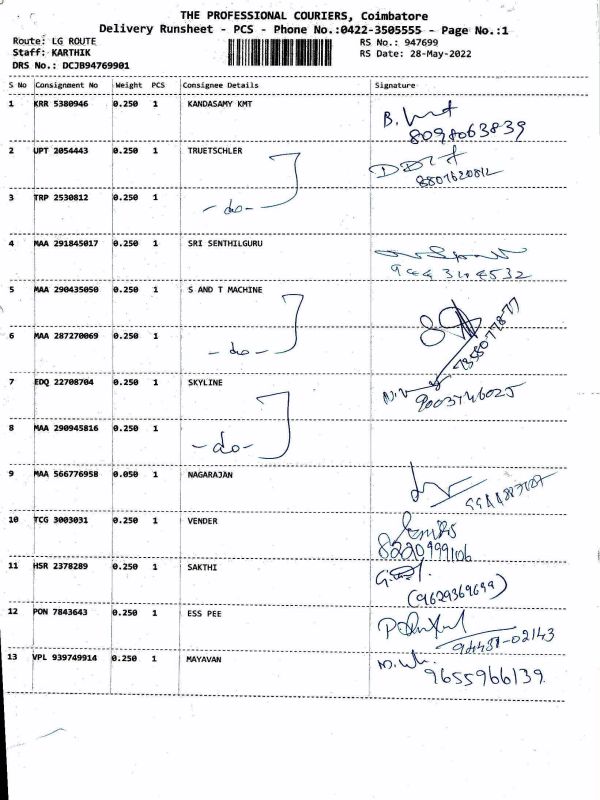 THE PROFESSIONAL COURIERS, Coimbatore
Delivery Runsheet - PCS - Phone No.:0422-3505555 - Page No.:1
Route: LG ROUTE RS No.: 947699
Staff: KARTHIK RS Date: 28-May-2022
DRS No.: DCJB94769901
S No Consignment No Weight PCS Consignee Details Signature
1 KRR 5380946 0.250 1 KANDASAMY KMT
8098063839
2 UPT 2054443 0.250 1 TRUETSCHLER
8807620812
3 TRP 2530812 0.250 1 -do-
4 MAA 291845017 0.250 1 SRI SENTHILGURU
944 344532
5 MAA 290435050 0.250 1 S AND T MACHINE
7358077877
6 MAA 287270069 0.250 1 -do-
7 EDQ 22708704 0.250 1 SKYLINE
9003746025
8 MAA 290945816 0.250 1 -do-
9 MAA 566776958 0.050 1 NAGARAJAN
10 TCG 3003031 0.250 1 VENDER
8220999106
11 HSR 2378289 0.250 1 SAKTHI
(9629369699)
12 PON 7843643 0.250 1 ESS PEE
94431-02143
13 VPL 939749914 0.250 1 MAYAVAN
9655966139